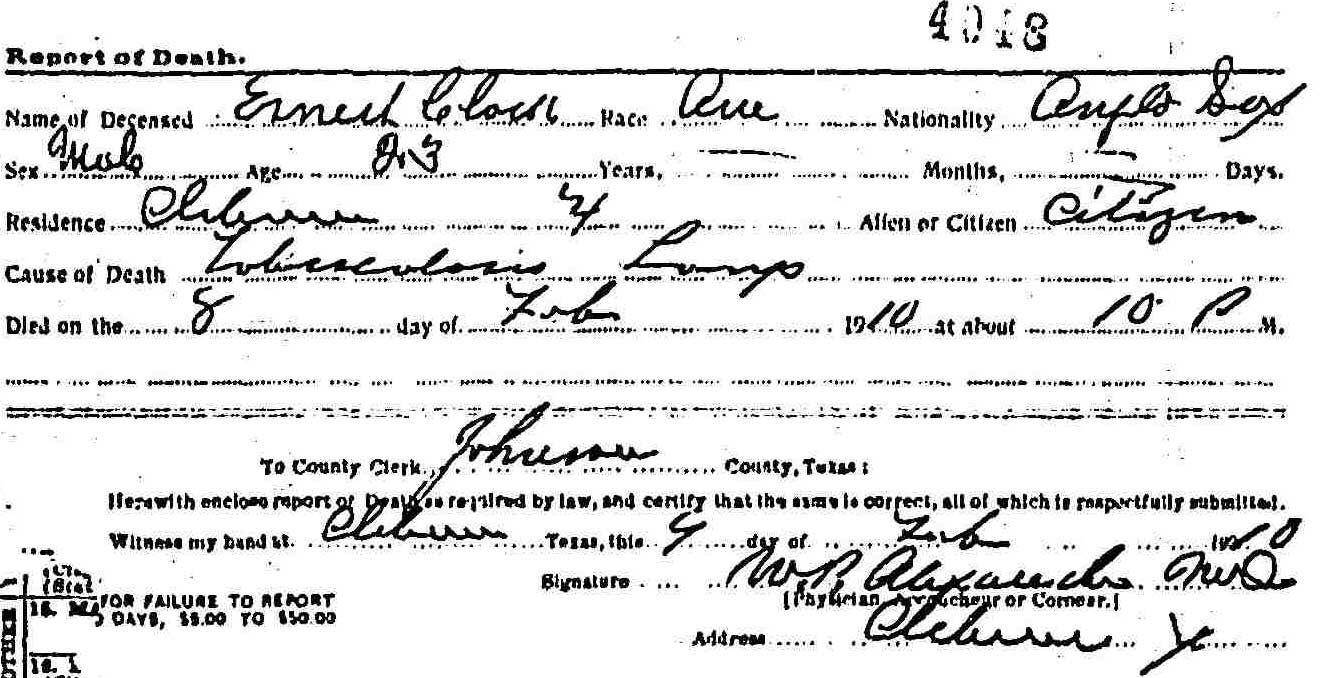 4048
Report of Death.
Name of Deceased Ernest Clock Race Ame Nationality Anglo Sax
Sex Male Age 23 Years, Months, Days.
Residence Cleburne Alien or Citizen Citizen
Cause of Death Tuberculosis Lungs
Died on the 8 day of Feb 1910 at about 10 P M.
To County Clerk, Johnson County, Texas:
Herewith enclose report of Death as required by law, and certify that the same is correct, all of which is respectfully submitted.
Witness my hand at Cleburne Texas, this 9 day of Feb 1910
Signature W. P. Alexander M.D.
[Physician, Accoucheur or Coroner.]
FOR FAILURE TO REPORT
DAYS, $5.00 TO $50.00
Address Cleburne